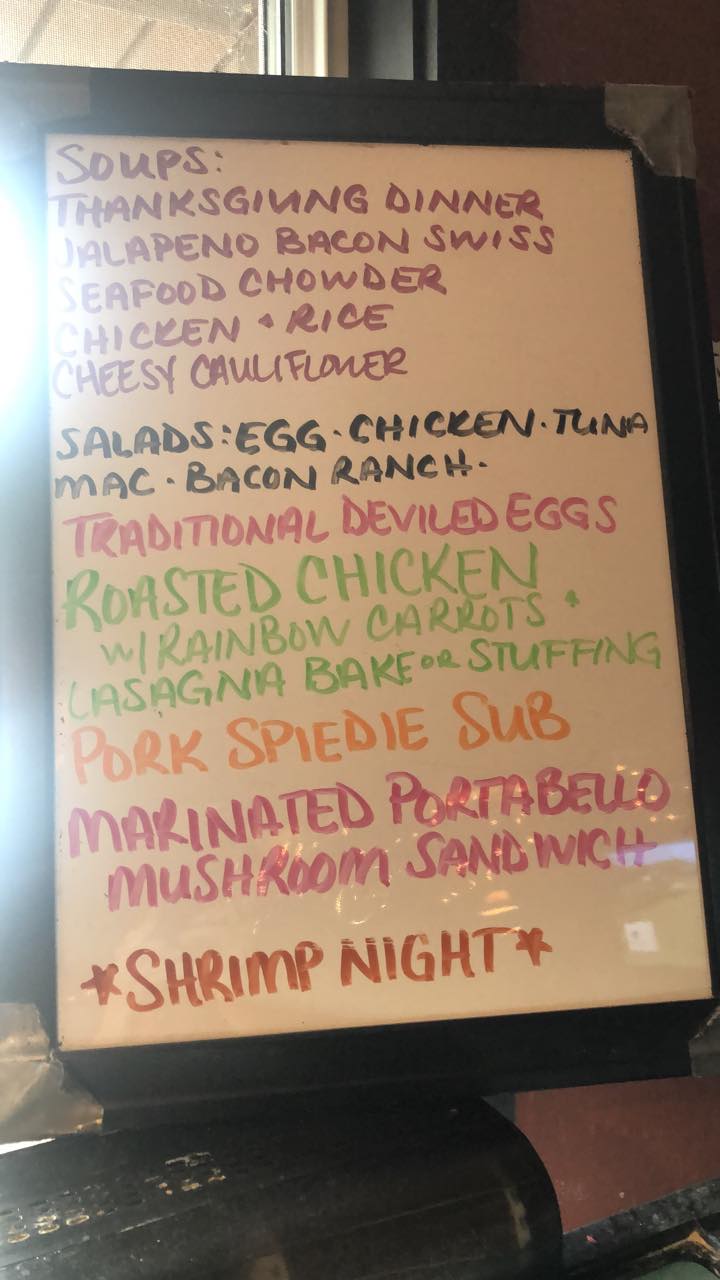 SOUPS:
THANKSGIVING DINNER
JALAPENO BACON SWISS
SEAFOOD CHOWDER
CHICKEN & RICE
CHEESY CAULIFLOWER
SALADS: EGG · CHICKEN · TUNA
MAC · BACON RANCH ·
TRADITIONAL DEVILED EGGS
ROASTED CHICKEN
W/ RAINBOW CARROTS &
LASAGNA BAKE OR STUFFING
PORK SPIEDIE SUB
MARINATED PORTABELLO
MUSHROOM SANDWICH
*SHRIMP NIGHT*